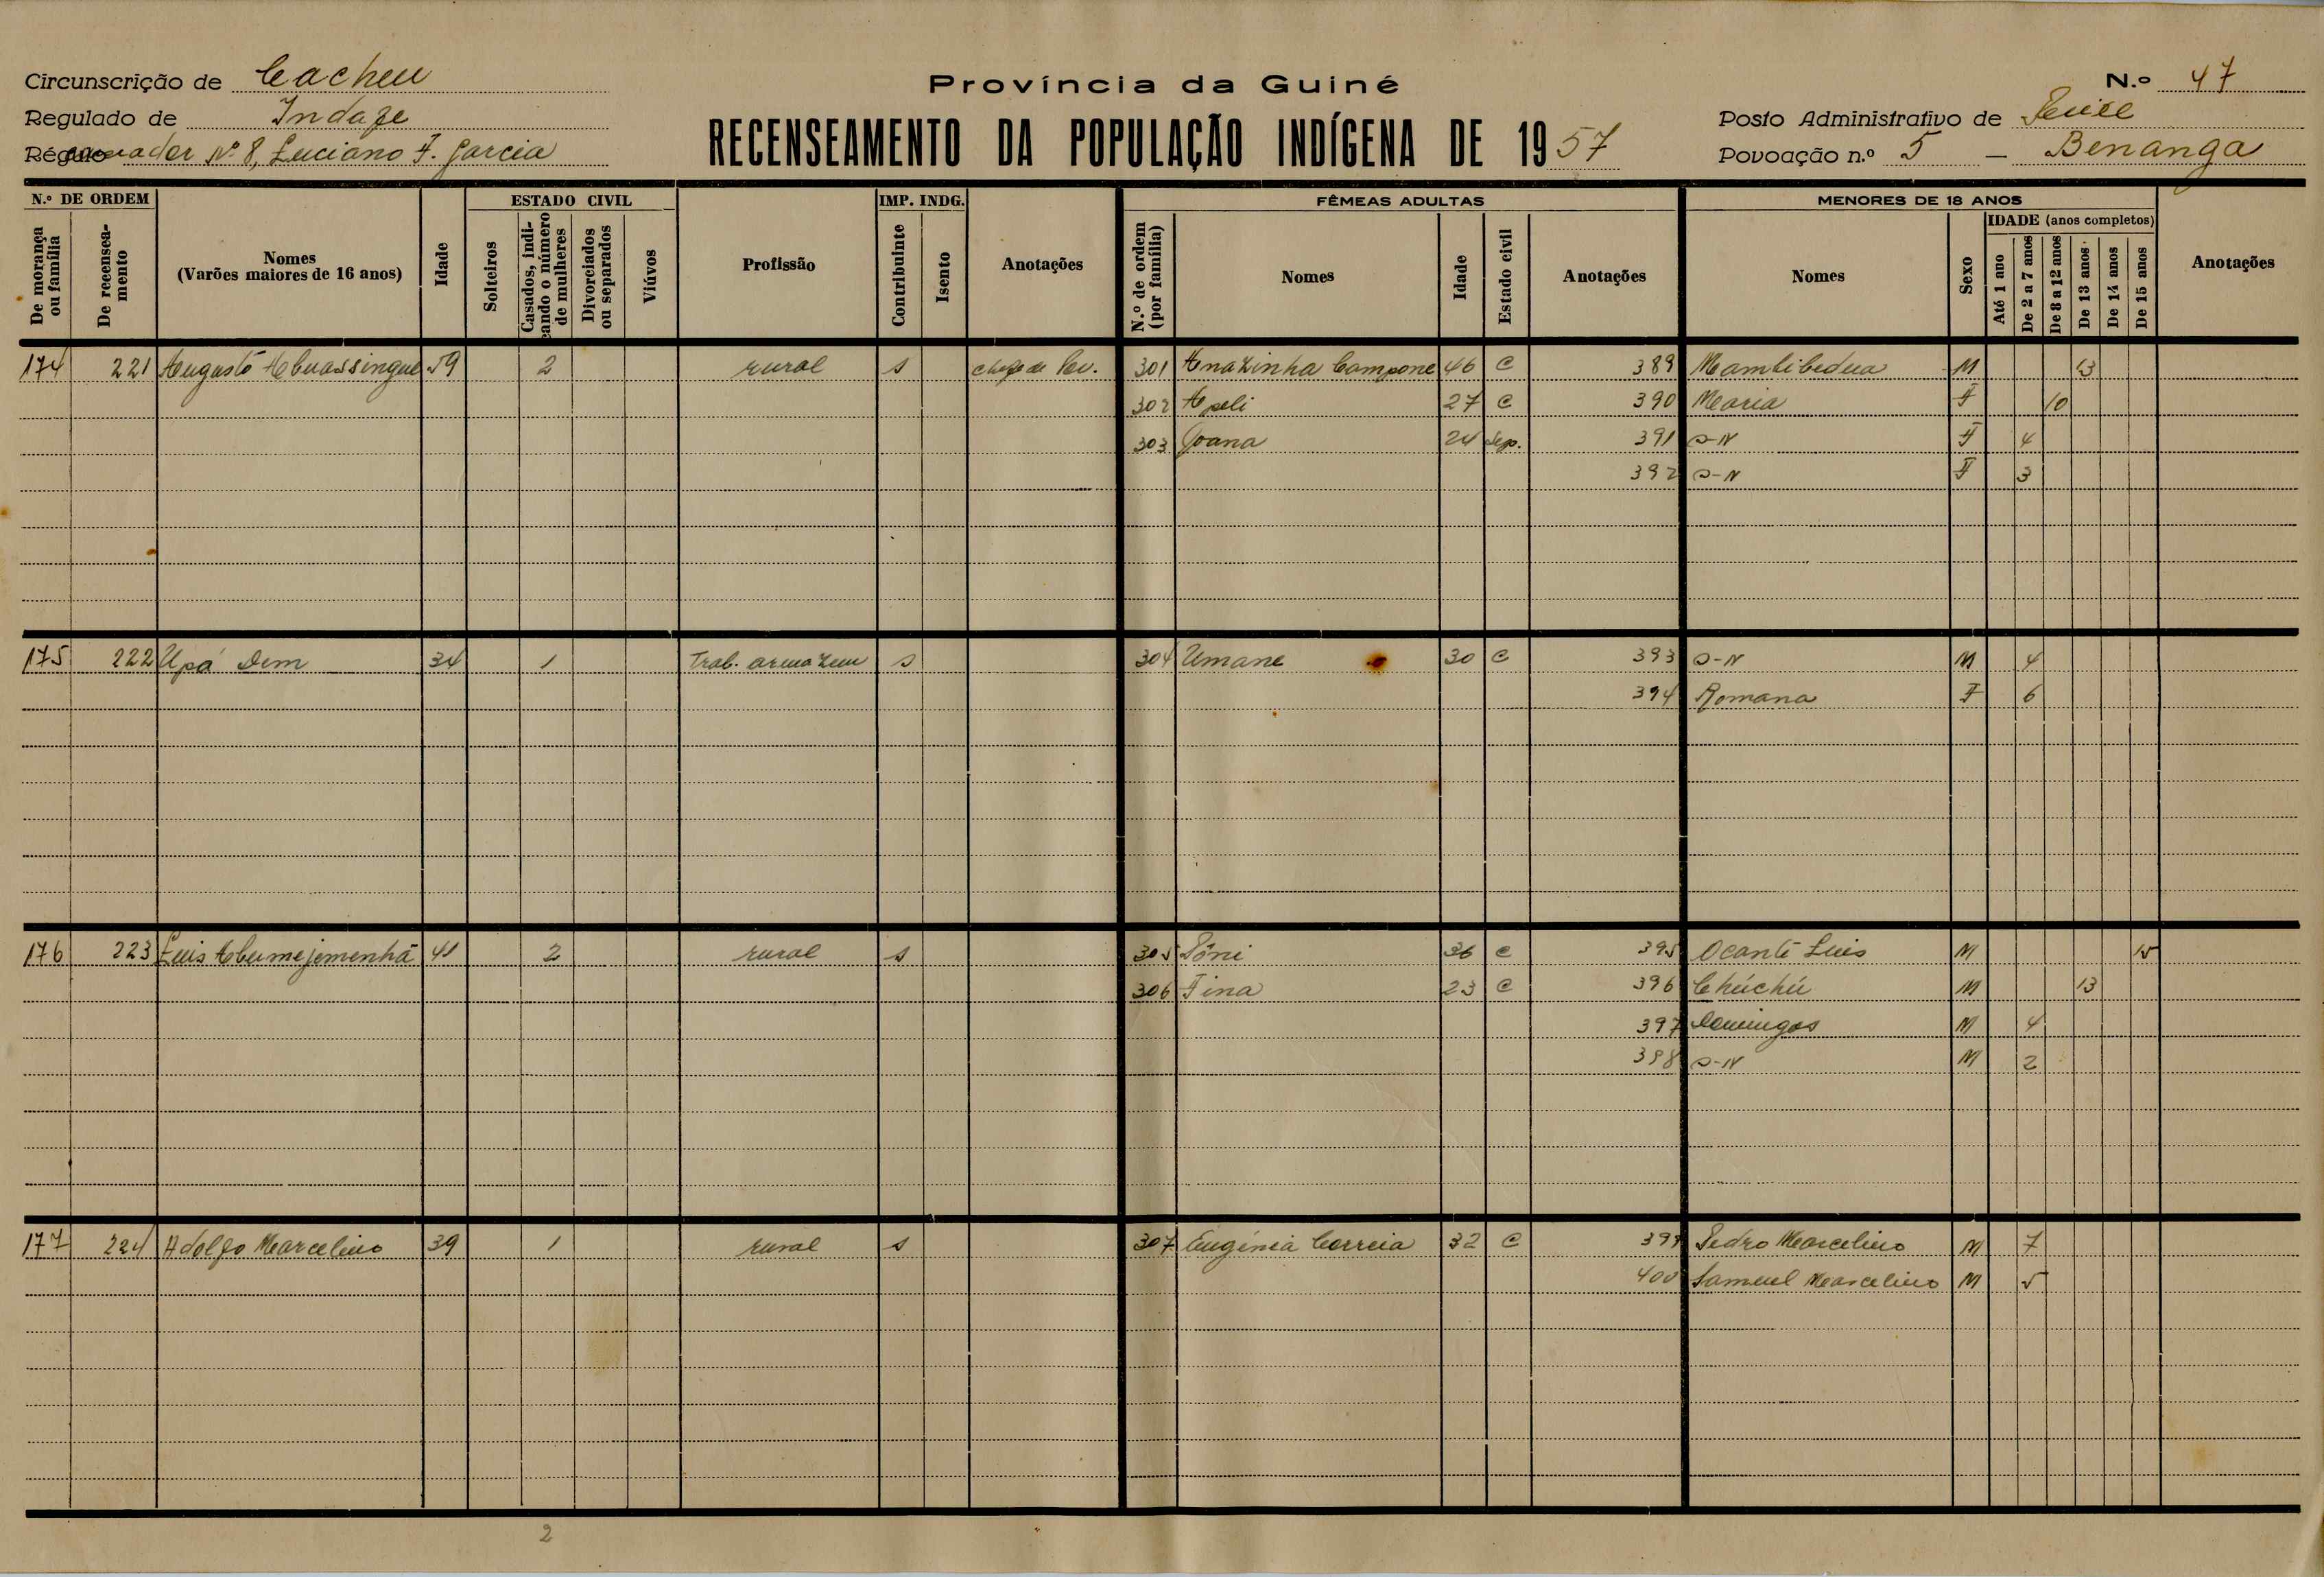 Circunscrição de Cacheu
Província da Guiné
N.º 47
Regulado de Indafe
RECENSEAMENTO DA POPULAÇÃO INDÍGENA DE 1957
Posto Administrativo de
Luciano F. Garcia
Povoação n.º 5 – Benanga
N.º DE ORDEM
De morança ou família
De recenseamento
Nomes
(Varões maiores de 16 anos)
Idade
ESTADO CIVIL
Solteiros
Casados, indicando o número de mulheres
Divorciados ou separados
Viúvos
Profissão
IMP. INDG.
Contribuinte
Isento
Anotações
FÊMEAS ADULTAS
N.º de ordem (por família)
Nomes
Idade
Estado civil
Anotações
MENORES DE 18 ANOS
Nomes
Sexo
IDADE (anos completos)
Até 1 ano
De 2 a 7 anos
De 8 a 12 anos
De 13 anos
De 14 anos
De 15 anos
Anotações
174 221 Augusto Abuassingue 59 2 rural s chefe de Pov. 301 Anazinha Campone 46 C 389 Mambibedua M 13
302 Apeli 27 C 390 Maria F 10
303 Joana 24 Sep. 391 S-N F 4
392 S-N F 3
175 222 Upá Dem 34 1 Trab. armazem s 304 Umane 30 C 393 S-N M 4
394 Romana F 6
176 223 Luis Abumejemenhã 41 2 rural s 305 Sôni 36 C 395 Ocante Luis M 15
306 Tina 23 C 396 Chúchú M 13
397 Domingos M 4
398 S-N M 2
177 224 Adolfo Marcelino 39 1 rural s 307 Eugénia Correia 32 C 399 Pedro Marcelino M 7
400 Samuel Marcelino M 5
2